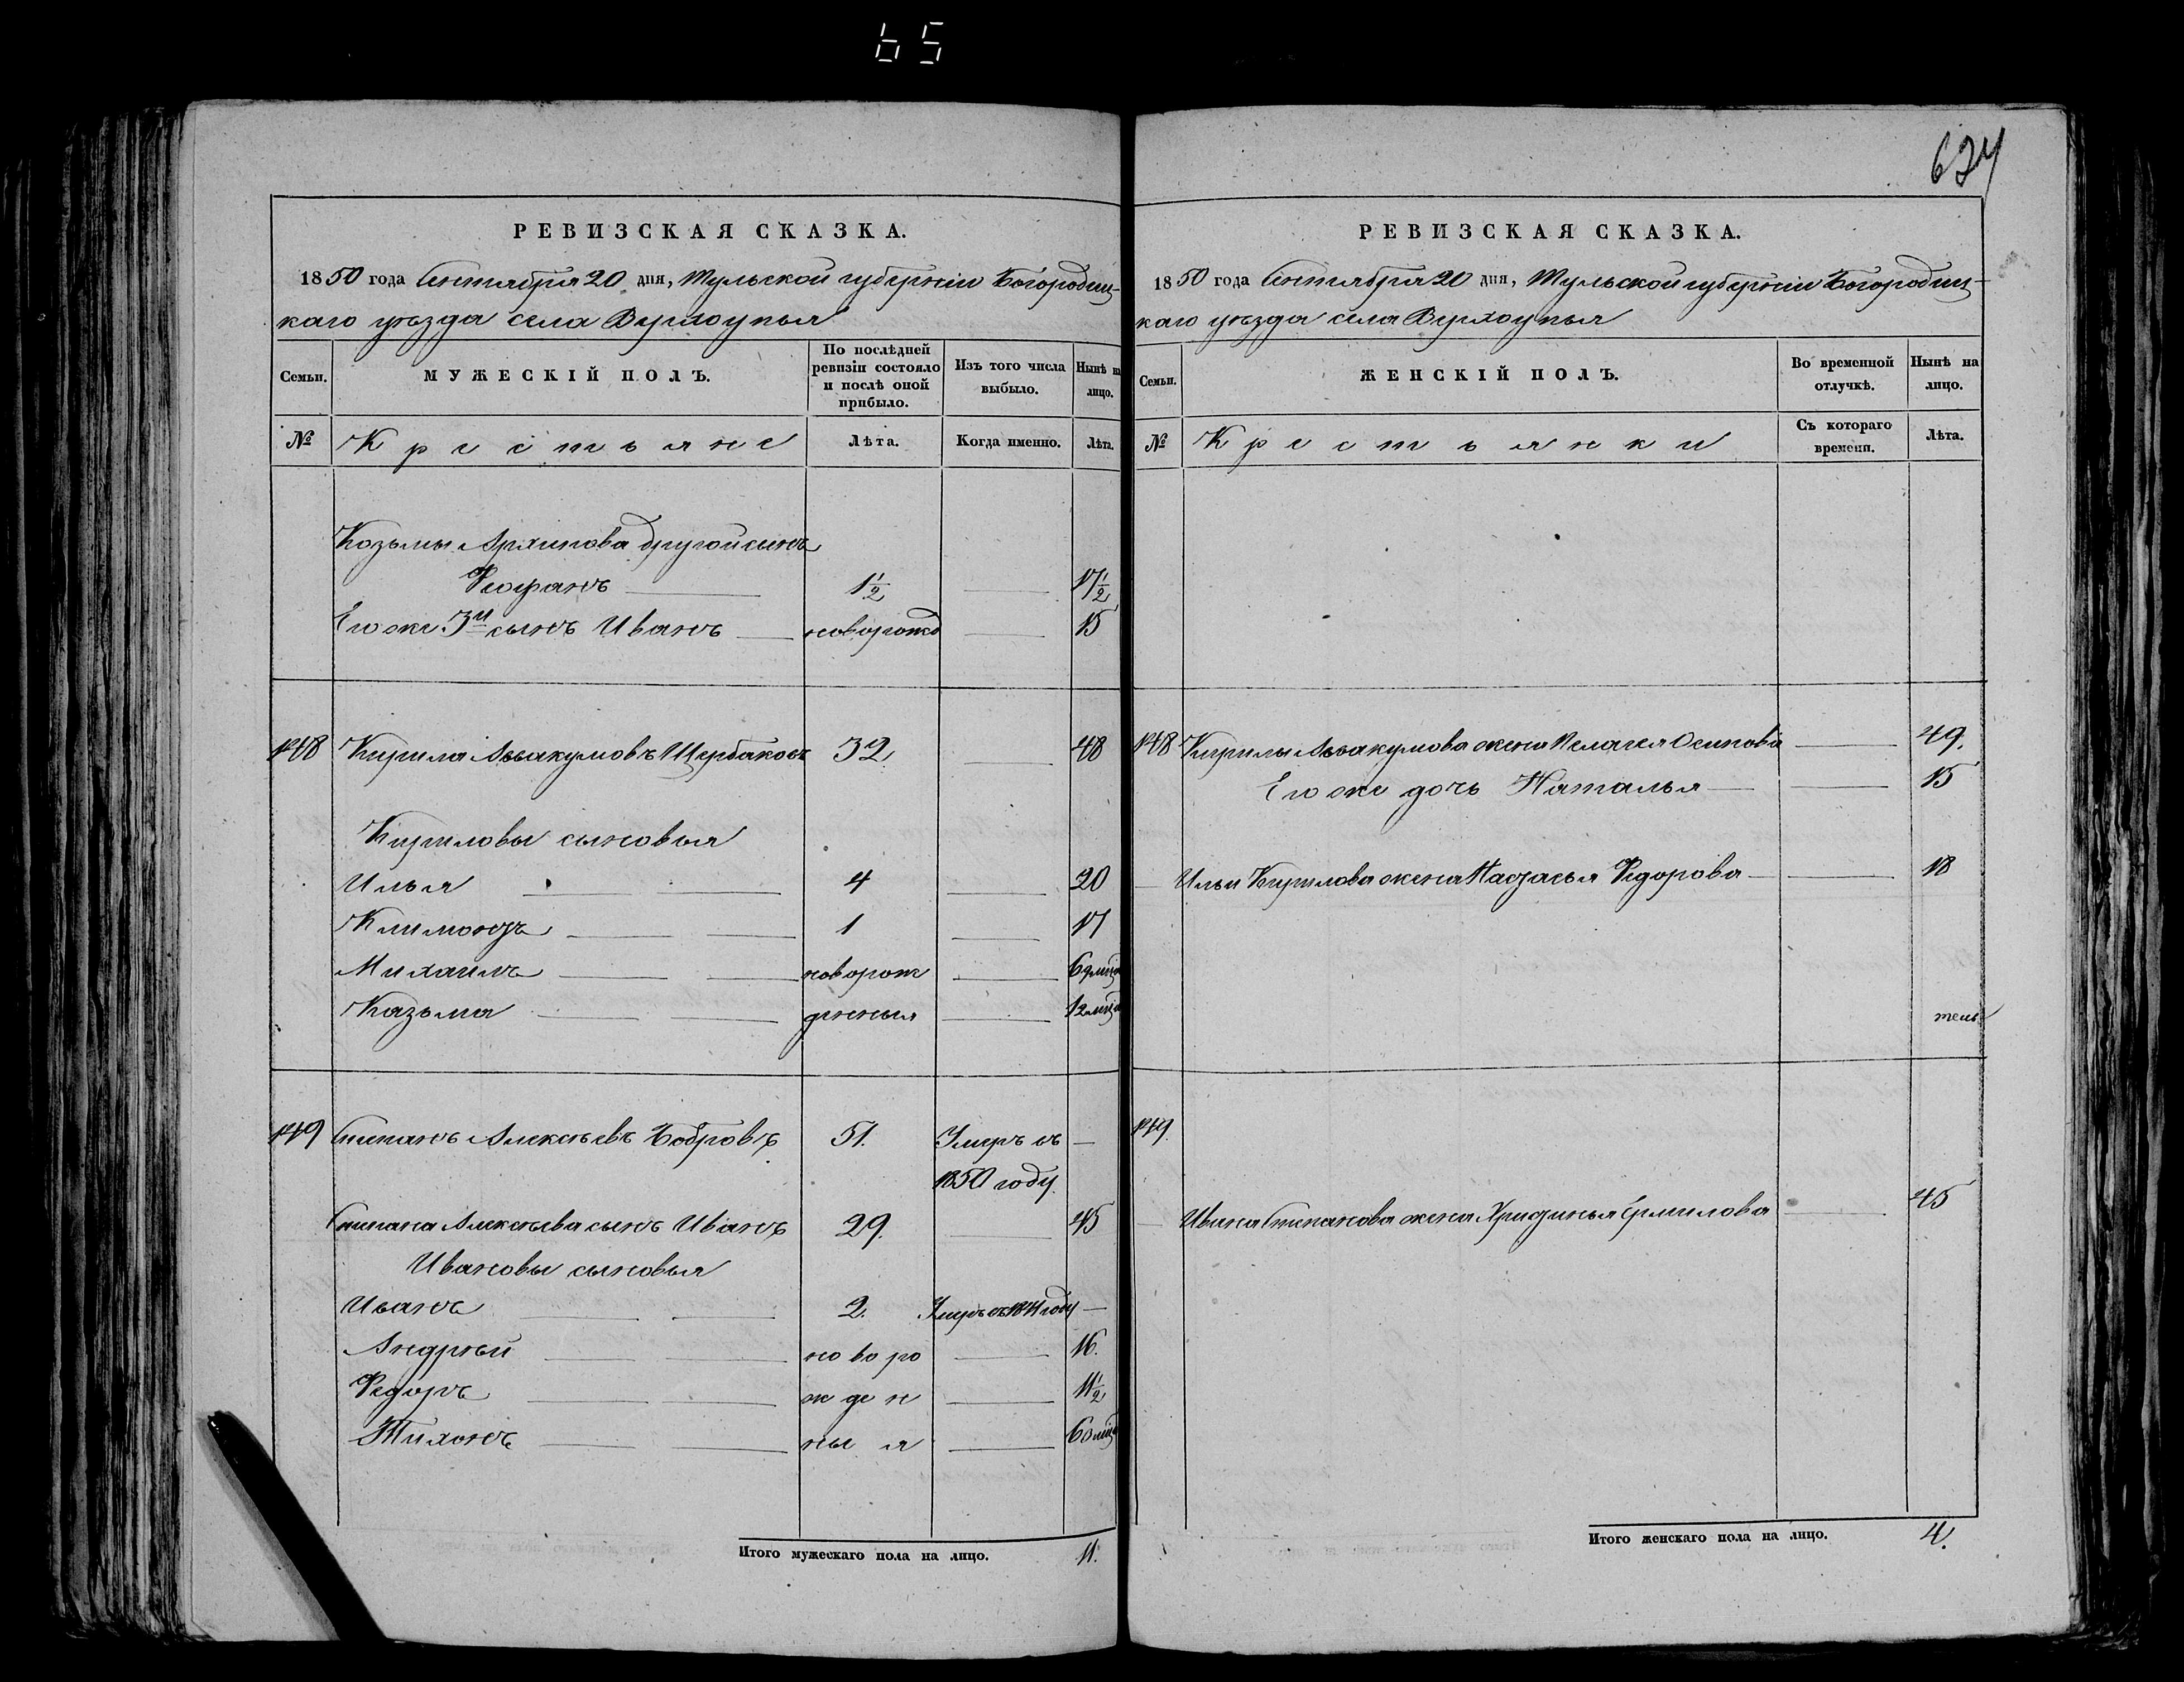 65
624
РЕВИЗСКАЯ СКАЗКА.
1850 года Сентября 20 дня, Тульской губерніи Богородиц-
каго уѣзда села Верхоупья
Семьи.
МУЖЕСКІЙ ПОЛЪ.
По послѣдней ревизіи состояло и послѣ оной прибыло.
Изъ того числа выбыло.
Нынѣ на лицо.
№
Крестьяне
Лѣта.
Когда именно.
Лѣта.
Козьмы Архипова другой сынъ
Феофанъ 1½ 17½
Его же 3й сынъ Иванъ новорожд 15
148 Кирила Аввакумовъ Щербаковъ 32 48
Кириловы сыновья
Илья 4 20
Климонтъ 1 17
Михаилъ новорож
Казьма денныя
149 Степанъ Алексѣевъ Бобровъ 51. Умеръ въ —
1850 году
Степана Алексѣева сынъ Иванъ 29. 45
Ивановы сыновья
Иванъ 2. Умеръ въ году —
Андрей новоро 16.
Федоръ жден 11½
Тихонъ ныя
Итого мужескаго пола на лицо. 11.
РЕВИЗСКАЯ СКАЗКА.
1850 года Сентября 20 дня, Тульской губерніи Богородиц-
каго уѣзда села Верхоупья
Семьи.
ЖЕНСКІЙ ПОЛЪ.
Во временной отлучкѣ.
Нынѣ на лицо.
№
Крестьянки
Съ котораго времени.
Лѣта.
148 Кирилы Аввакумова жена Пелагея Осипова 49.
Его же дочь Наталья 15
Ильи Кирилова жена Настасья Федорова 18
тель
149.
Ивана Степанова жена Христинья Ермилова 45
Итого женскаго пола на лицо. 4.